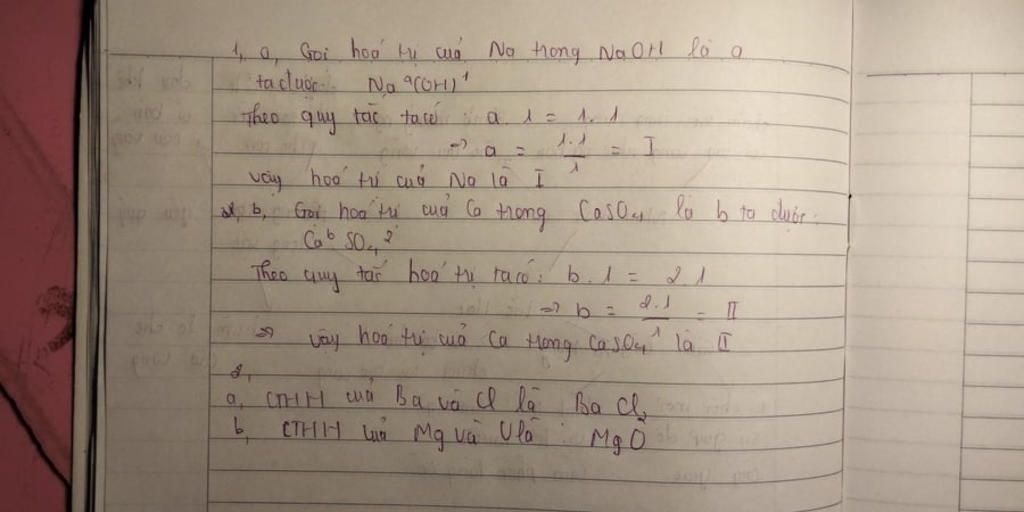 1, a, Gọi hoá trị cuả Na trong NaOH là a
ta được: Na^a(OH)^1
Theo quy tắc ta có: a. 1 = 1. 1
=> a = 1.1/1 = I
vậy hoá trị cuả Na là I
b, Gọi hoá trị cuả Ca trong CaSO₄ là b ta được:
Ca^b SO₄^2
Theo quy tắc hoá trị ta có: b. 1 = 2. 1
=> b = 2.1/1 = II
=> vậy hoá trị cuả Ca trong CaSO₄ là II
2,
a, CTHH cuả Ba và Cl là BaCl₂
b, CTHH cuả Mg và O là MgO